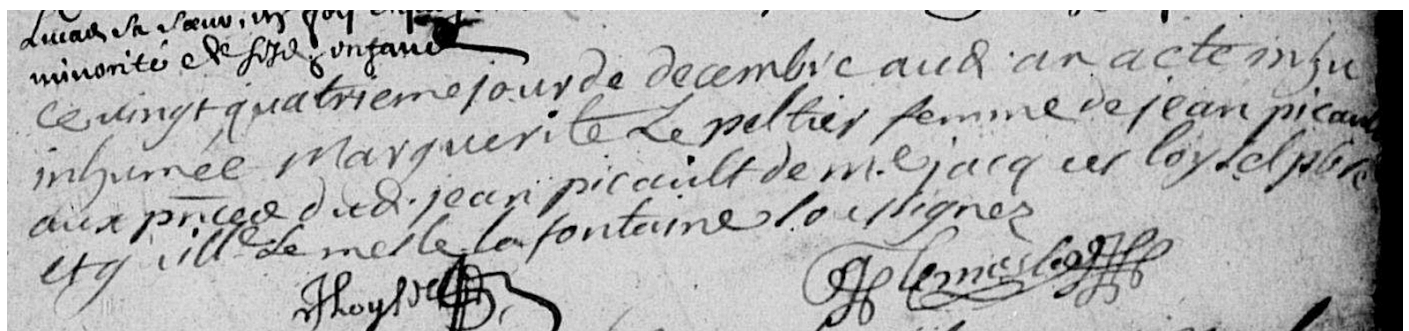 sa sœur
minorité de enfans
ce vingt quatrieme jour de decembre aud. an a cte inhu
inhumée Marguerite Le peltier femme de jean picault
aux pnces dud. jean picault de m.e jacques loysel pbre
et guill.e Le mesle la fontaine soussignez
J loysel J lemesle